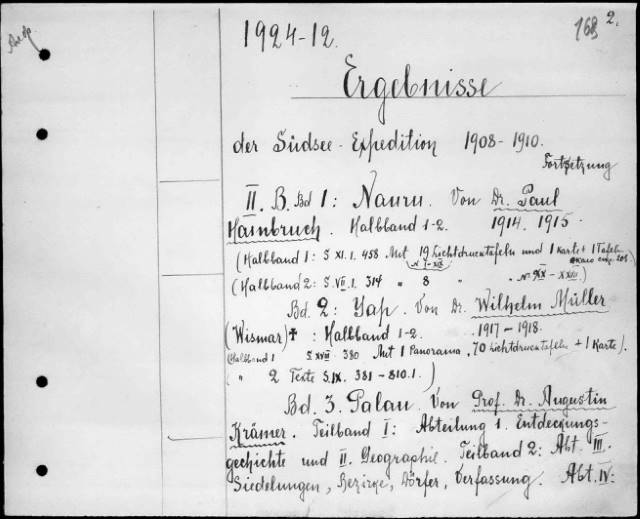 1924-12.
168 2.
Ergebnisse
der Südsee-Expedition 1908-1910.
Fortsetzung
II. B. Bd 1: Nauru. Von Dr. Paul
Hambruch. Halbband 1-2. 1914. 1915.
(Halbband 1: S XI. 1. 458 Mit 19 Lichtdrucktafeln und 1 Karte + 1 Tafel
(Halbband 2: S. VII. 1. 314 " 8 " " N. XX - XXVII.)
Bd. 2: Yap. Von Dr. Wilhelm Müller
(Wismar) ✝ : Halbband 1-2. 1917-1918.
(Halbband 1 S. XVII. 380 Mit 1 Panorama, 70 Lichtdrucktafeln + 1 Karte).
( " 2 Texte S. IX. 381-810.1.)
Bd. 3. Palau. Von Prof. Dr. Augustin
Krämer. Teilband I: Abteilung 1. Entdeckungs-
geschichte und II. Geographie. Teilband 2: Abt. III.
Siedelungen, Bezirke, Dörfer, Verfassung. Abt. IV: